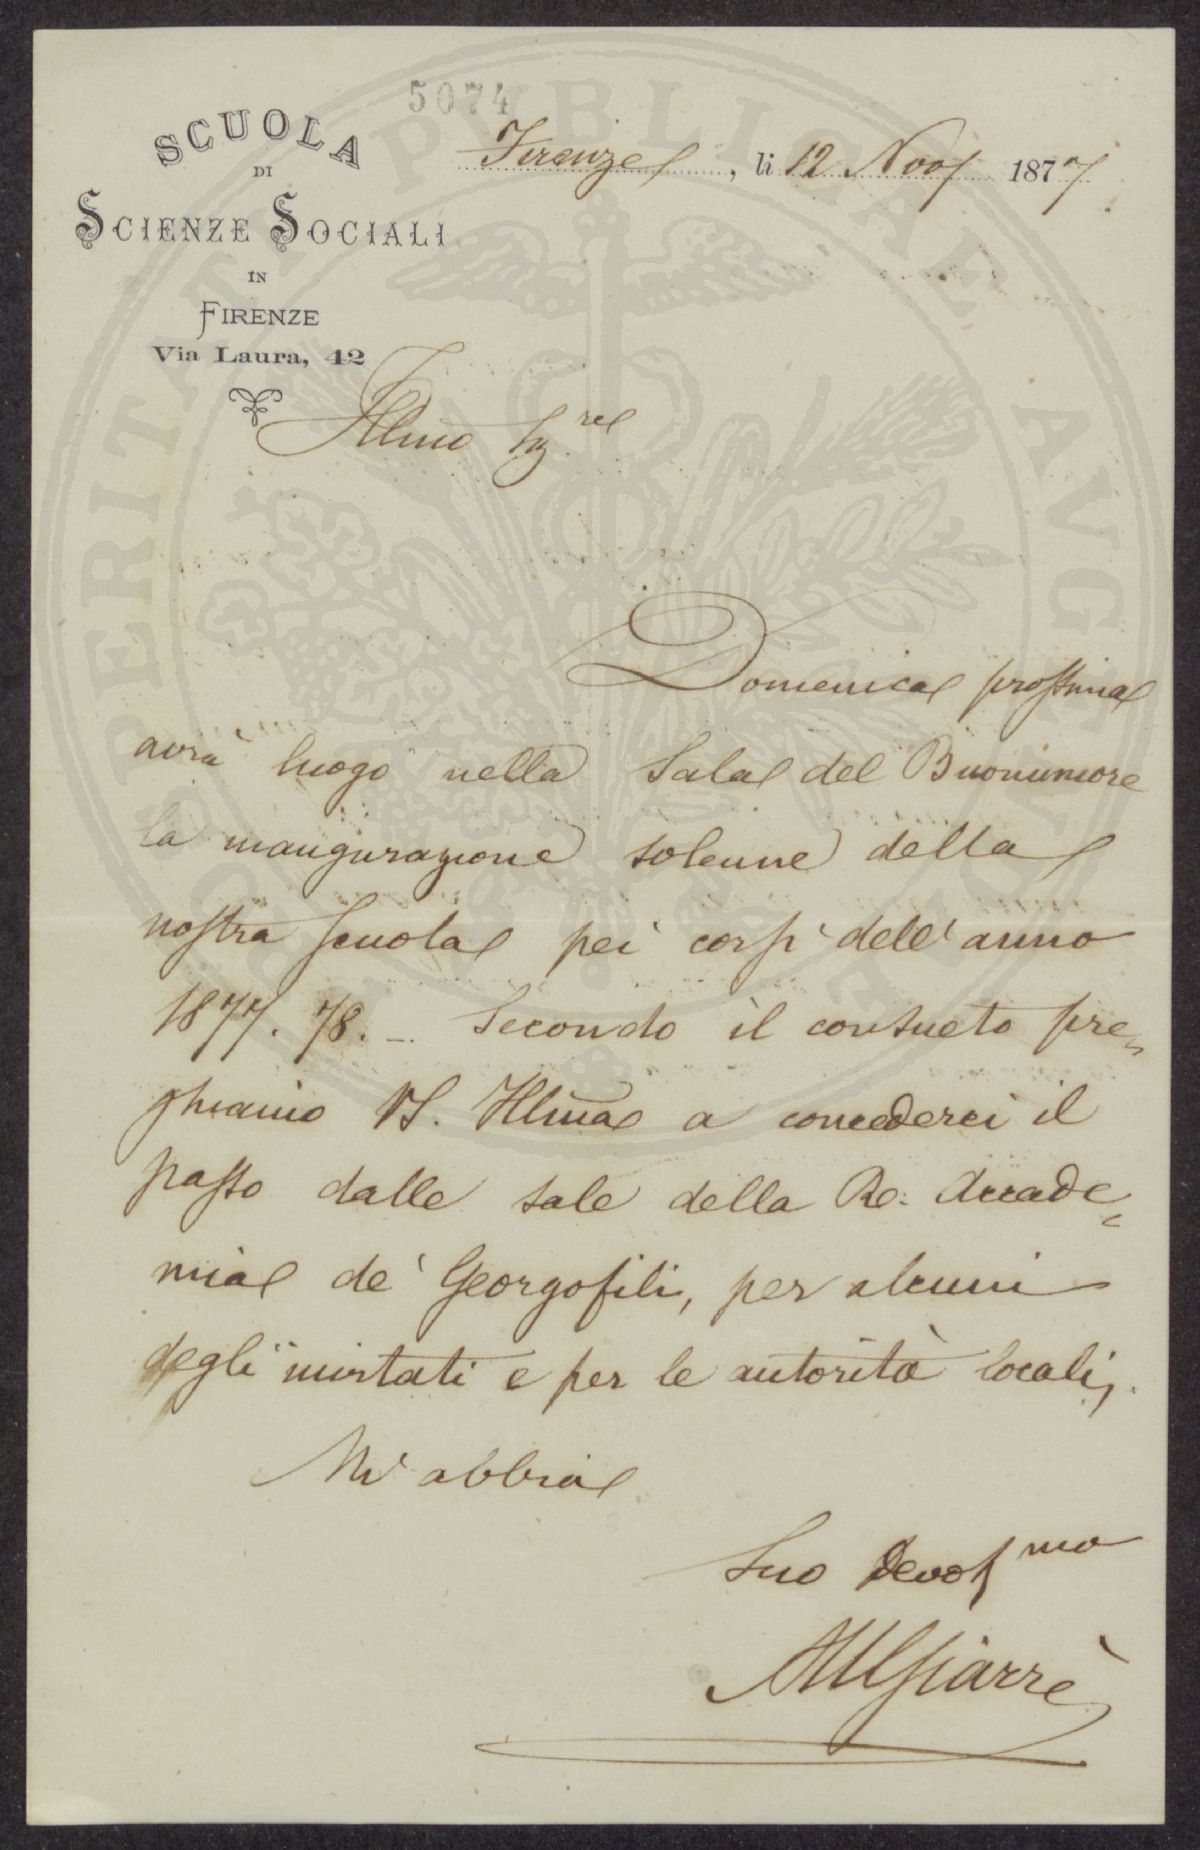 5074
SCUOLA
DI
SCIENZE SOCIALI
IN
FIRENZE
Via Laura, 42
Firenze, li 12 Nov 1877
Illmo Sig.re
Domenica prossima
avrà luogo nella Sala del Buonumore
la inaugurazione solenne della
nostra Scuola pei corsi dell'anno
1877.78. _ Secondo il consueto pre=
ghiamo VS. Illma a concederci il
passo dalle sale della R. Accade=
mia de' Georgofili, per alcuni
degli invitati e per le autorità locali,
Mi abbia
Suo Devot mo
Giarrè
PROSPERITATI PVBLICAE AVGENDAE